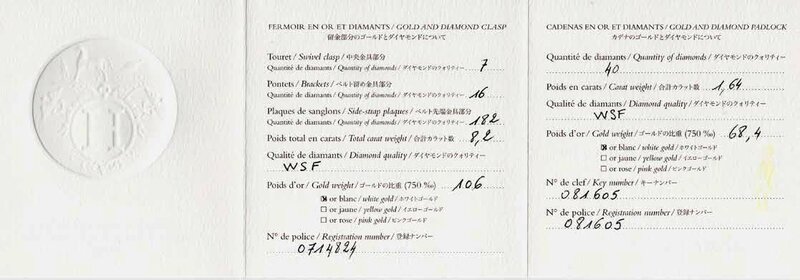 H
FERMOIR EN OR ET DIAMANTS / GOLD AND DIAMOND CLASP
留金部分のゴールドとダイヤモンドについて
Touret / Swivel clasp / 中央金具部分
Quantité de diamants / Quantity of diamonds / ダイヤモンドのクォリティー 7
Pontets / Brackets / ベルト留め金具部分
Quantité de diamants / Quantity of diamonds / ダイヤモンドのクォリティー 16
Plaques de sanglons / Side-strap plaques / ベルト先端金具部分
Quantité de diamants / Quantity of diamonds / ダイヤモンドのクォリティー 182
Poids total en carats / Total carat weight / 合計カラット数 8,2
Qualité de diamants / Diamond quality / ダイヤモンドのクォリティー
WSF
Poids d'or / Gold weight / ゴールドの比重 (750 ‰) 106
☒ or blanc / white gold / ホワイトゴールド
☐ or jaune / yellow gold / イエローゴールド
☐ or rose / pink gold / ピンクゴールド
N° de police / Registration number / 登録ナンバー
0714824
CADENAS EN OR ET DIAMANTS / GOLD AND DIAMOND PADLOCK
カデナのゴールドとダイヤモンドについて
Quantité de diamants / Quantity of diamonds / ダイヤモンドのクォリティー
40
Poids en carats / Carat weight / 合計カラット数 1,64
Qualité de diamants / Diamond quality / ダイヤモンドのクォリティー
WSF
Poids d'or / Gold weight / ゴールドの比重 (750 ‰) 68,4
☒ or blanc / white gold / ホワイトゴールド
☐ or jaune / yellow gold / イエローゴールド
☐ or rose / pink gold / ピンクゴールド
N° de clef / Key number / キーナンバー
081605
N° de police / Registration number / 登録ナンバー
081605